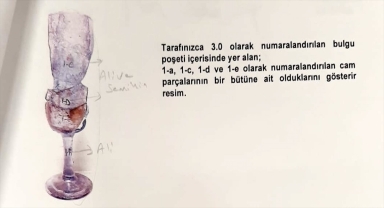 Tarafınızca 3.0 olarak numaralandırılan bulgu
poşeti içerisinde yer alan;
1-a, 1-c, 1-d ve 1-e olarak numaralandırılan cam
parçalarının bir bütüne ait olduklarını gösterir
resim.
Ali